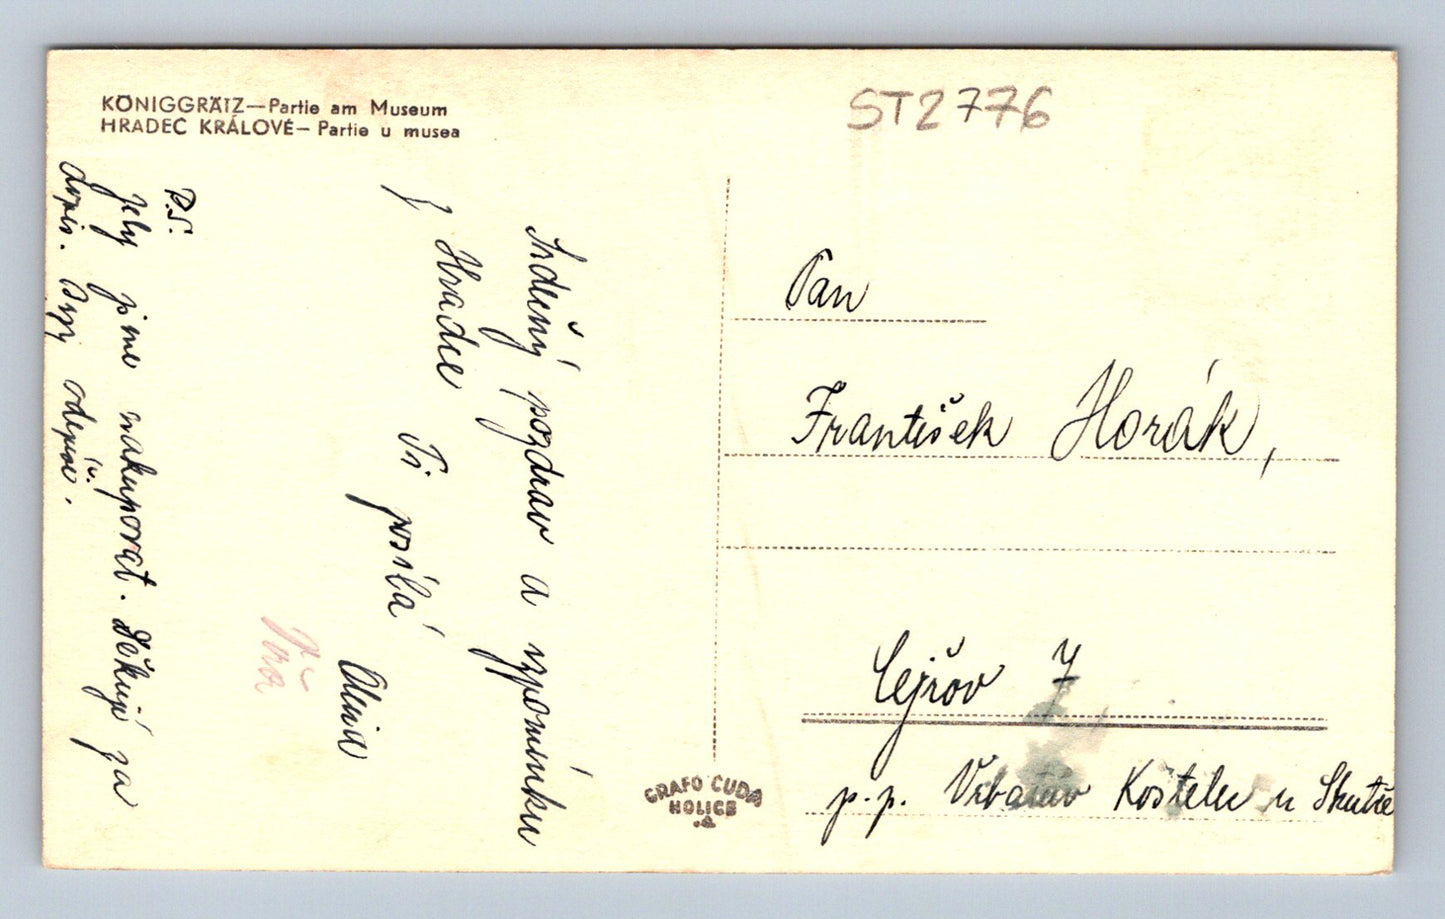 KÖNIGGRÄTZ—Partie am Museum
HRADEC KRÁLOVÉ—Partie u musea
ST2776
Srdečný pozdrav a vzpomínku
z Hradce Ti posílá
Jura
P.S.
jsme nakupovat. Děkuji za
dopis. Brzy odepiš.
Pan
František Horák,
Lejřov 7
p.p. Vrbatův Kostelec u Skutče
GRAFO ČUDA
HOLICE